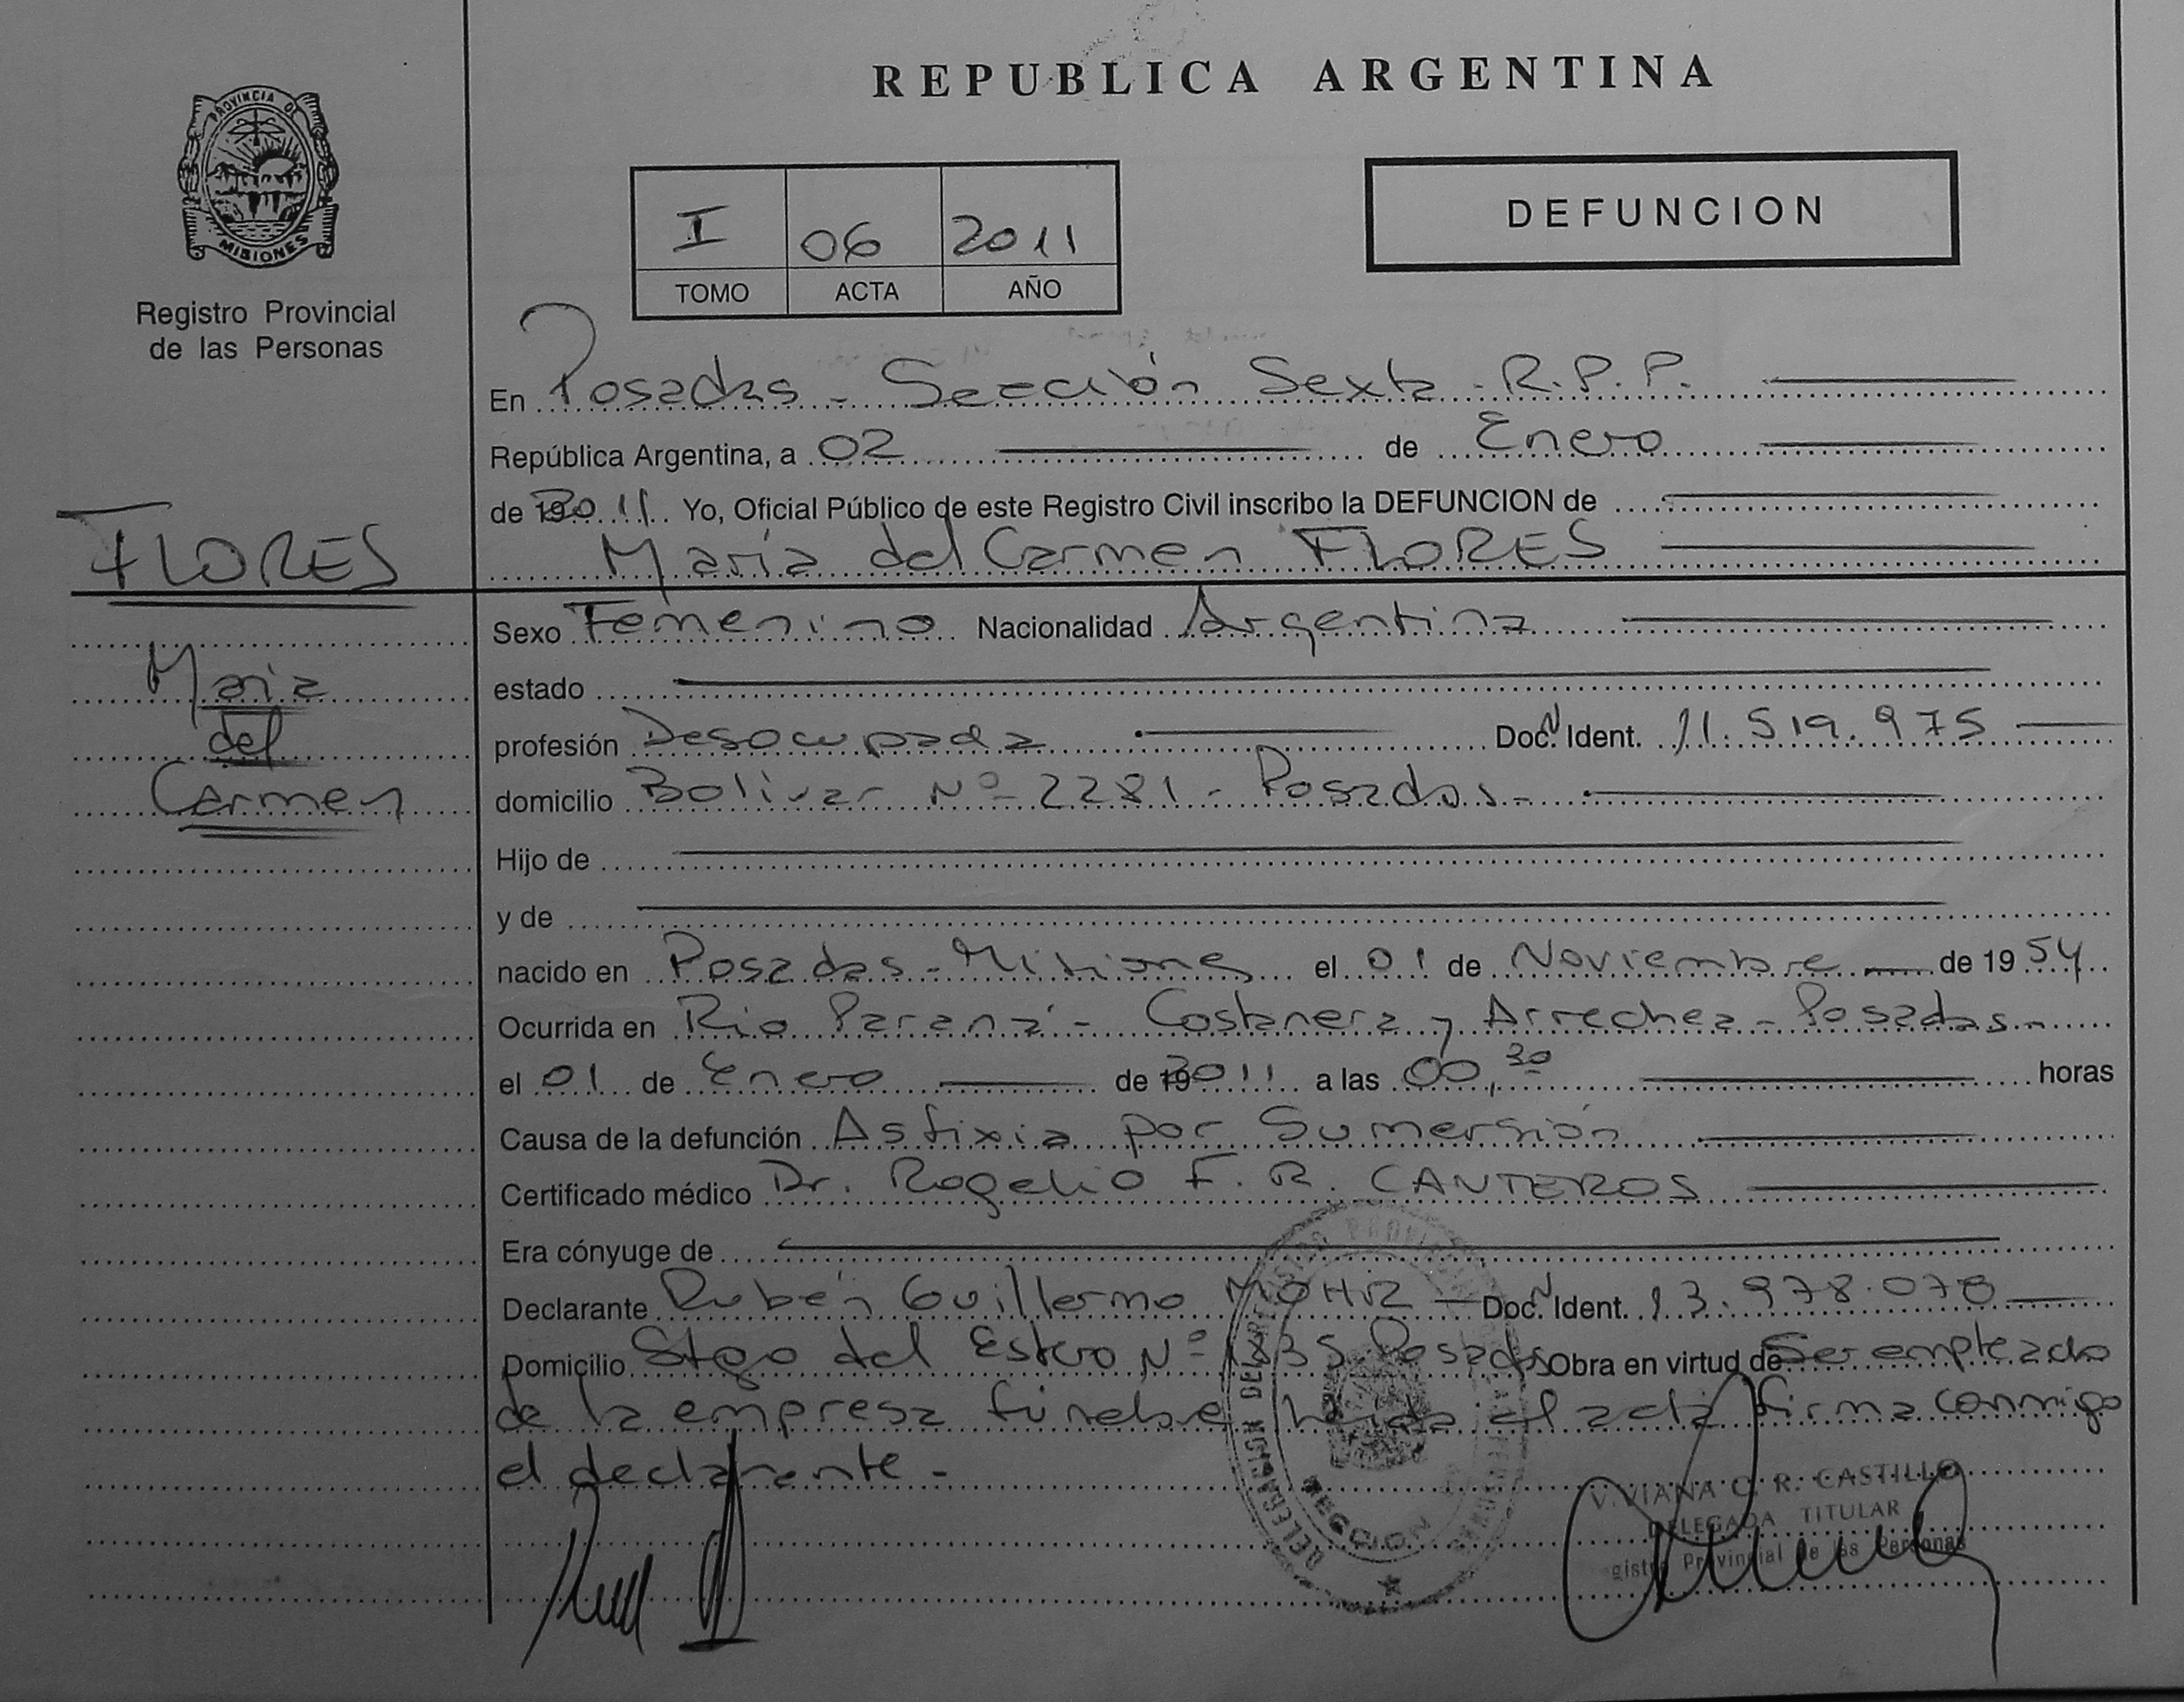 REPUBLICA ARGENTINA
PROVINCIA DE
MISIONES
Registro Provincial
de las Personas
I 06 2011
TOMO ACTA AÑO
DEFUNCION
En Posadas - Sección Sexta - R.P.P.
República Argentina, a 02 de Enero
de 2011 Yo, Oficial Público de este Registro Civil inscribo la DEFUNCION de
María del Carmen FLORES
FLORES
Maria
del
Carmen
Sexo Femenino Nacionalidad Argentina
estado
profesión Desocupada Doc. N Ident. 11.519.975
domicilio Bolivar Nº 2281 - Posadas -
Hijo de
y de
nacido en Posadas - Misiones el 01 de Noviembre de 1954
Ocurrida en Rio Paraná - Costanera y Arrechea - Posadas -
el 01 de Enero de 2011 a las 00,30 horas
Causa de la defunción Asfixia por Sumersión
Certificado médico Dr. Rogelio F. R. CANTEROS
Era cónyuge de
Declarante Rubén Guillermo MOHR Doc. N Ident. 13.978.078
Domicilio Stgo del Estero Nº 1835 Posadas Obra en virtud de Ser empleado
de la empresa fúnebre leida el acta firma conmigo
el declarante -
V.VIANA C. R. CASTILLO
DELEGADA TITULAR
gistro Provincial de las Personas